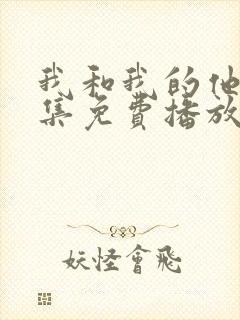 我和我的他
集免费播放
妖怪會飛